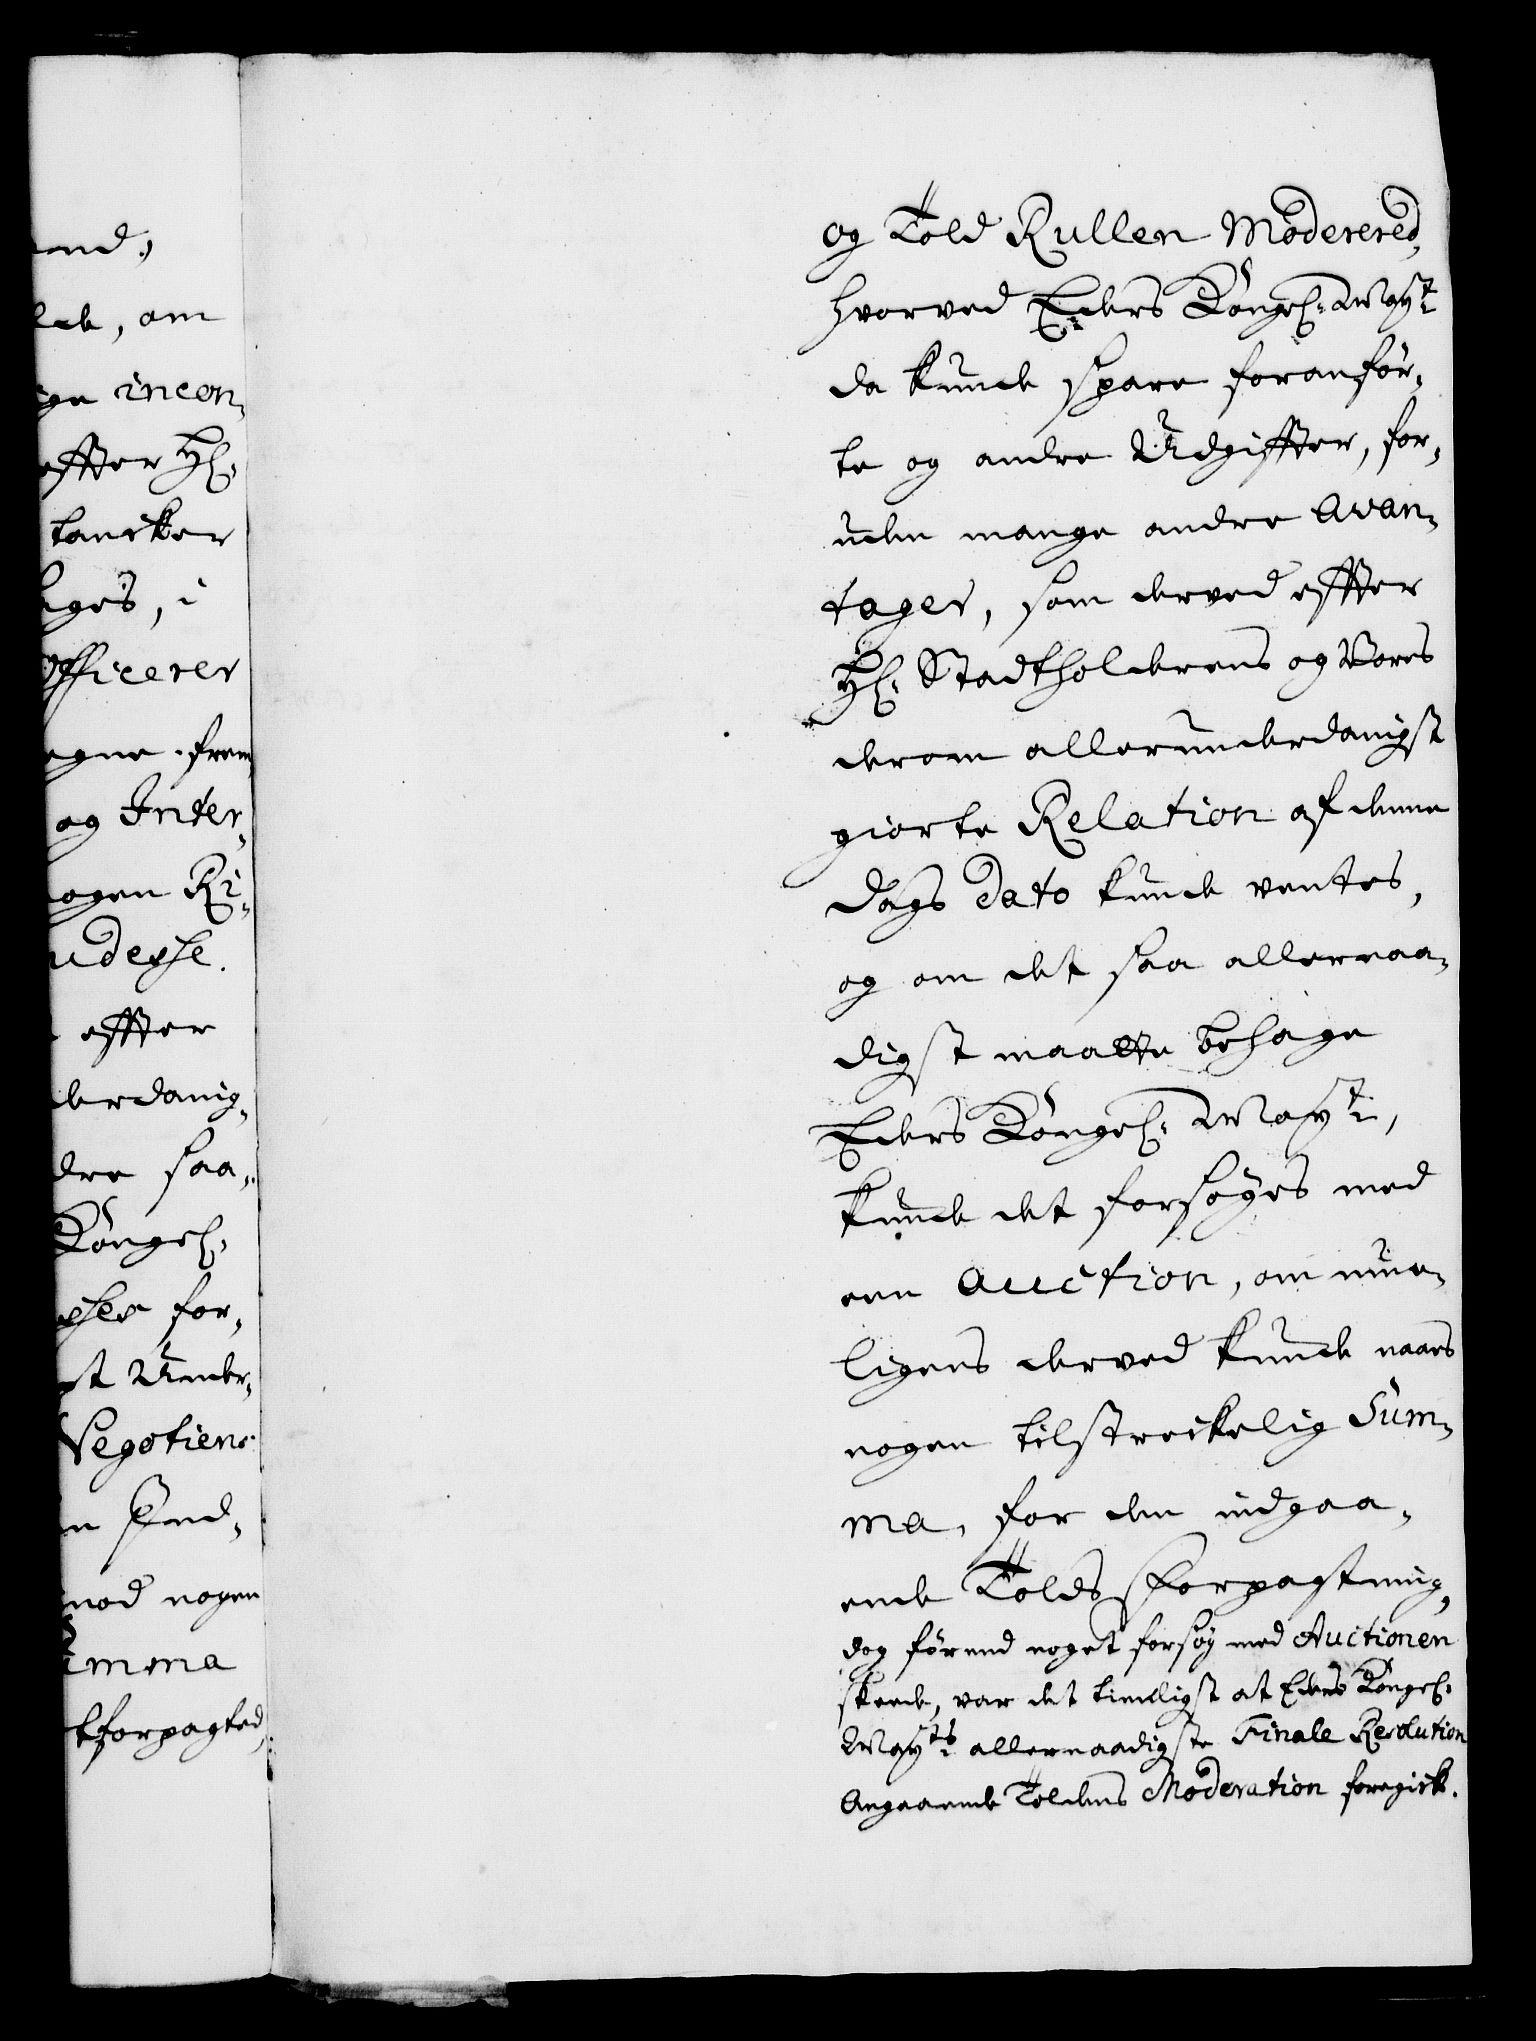 end,
lde, om
ige incon¬
effter Hl:
tancker
ages, i
Officerer
egne frem
og Inter¬
nogen Ri¬
udesse.
effter
derdanig¬
dre saa¬
Kongel:
sser for¬
st Under¬
Negotiens
n End¬
mod nogen
Summa
tforpagted,
og Told Rullen Moderered,
hvorved Eders Kongel: Mayt:
da kunde spare foranför¬
te og andre Udgiffter, for¬
uden mange andre Avan¬
tager, som derved effter
Hl: Stadtholderens og Vores
derom allerunderdanigst
giorte Relation af denne
Dags Dato kunde ventes,
og om det saa allernaa¬
digst maatte behage
Eders Kongel: Mayt:,
kunde det forsøges med
een Auction, om mue¬
ligens derved kunde naaes
nogen tilstreckelig Sum¬
ma, for den indgaa¬
ende Tolds Forpagtning,
dog förend noget forsøg med Auctionen
skeede, var det tienligst at Eders Kongel:
Mayts: allernaadigste Finale Resolution
Angaaende Toldens Moderation foregick.